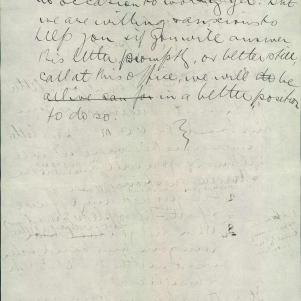 no occasion to worry yet. But
we are willing & anxious to
help you & if you will answer
this letter promptly, or better still,
call at this office, we will to be
in a better position
to do so.